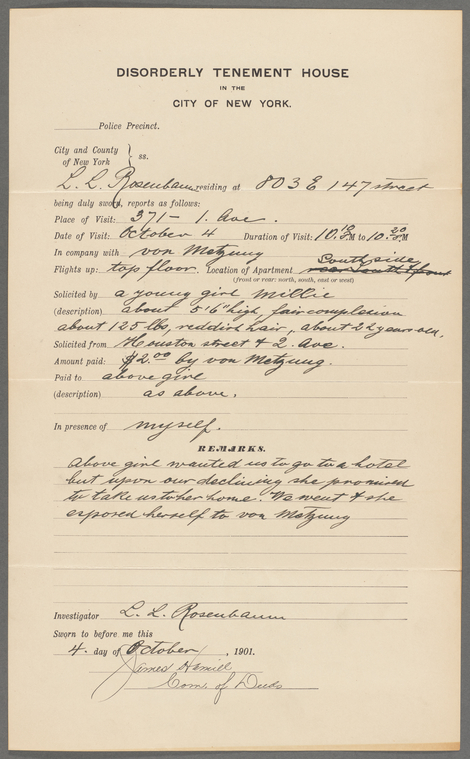 DISORDERLY TENEMENT HOUSE
IN THE
CITY OF NEW YORK.
Police Precinct.
City and County
of New York } ss.
L. L. Rosenbaum, residing at 803 E 147 street
being duly sworn, reports as follows:
Place of Visit: 371 - 1. Ave.
Date of Visit: October 4 Duration of Visit: 10.10 P.M to 10.20 P.M
In company with von Metzung South side
Flights up: top floor. Location of Apartment rear South front
(front or rear: north, south, east or west)
Solicited by a young girl Millie
(description) about 5'6 high, fair complexion
about 125 lbs, reddish hair, about 22 years old,
Solicited from Houston street & 2. Ave.
Amount paid: $2.00 by von Metzung.
Paid to above girl
(description) as above.
In presence of myself.
REMARKS.
Above girl wanted us to go to a hotel
but upon our declining she promised
to take us to her home. We went & she
exposed herself to von Metzung
Investigator L. L. Rosenbaum
Sworn to before me this
4. day of October, 1901.
James Hamill
Com. of Deeds